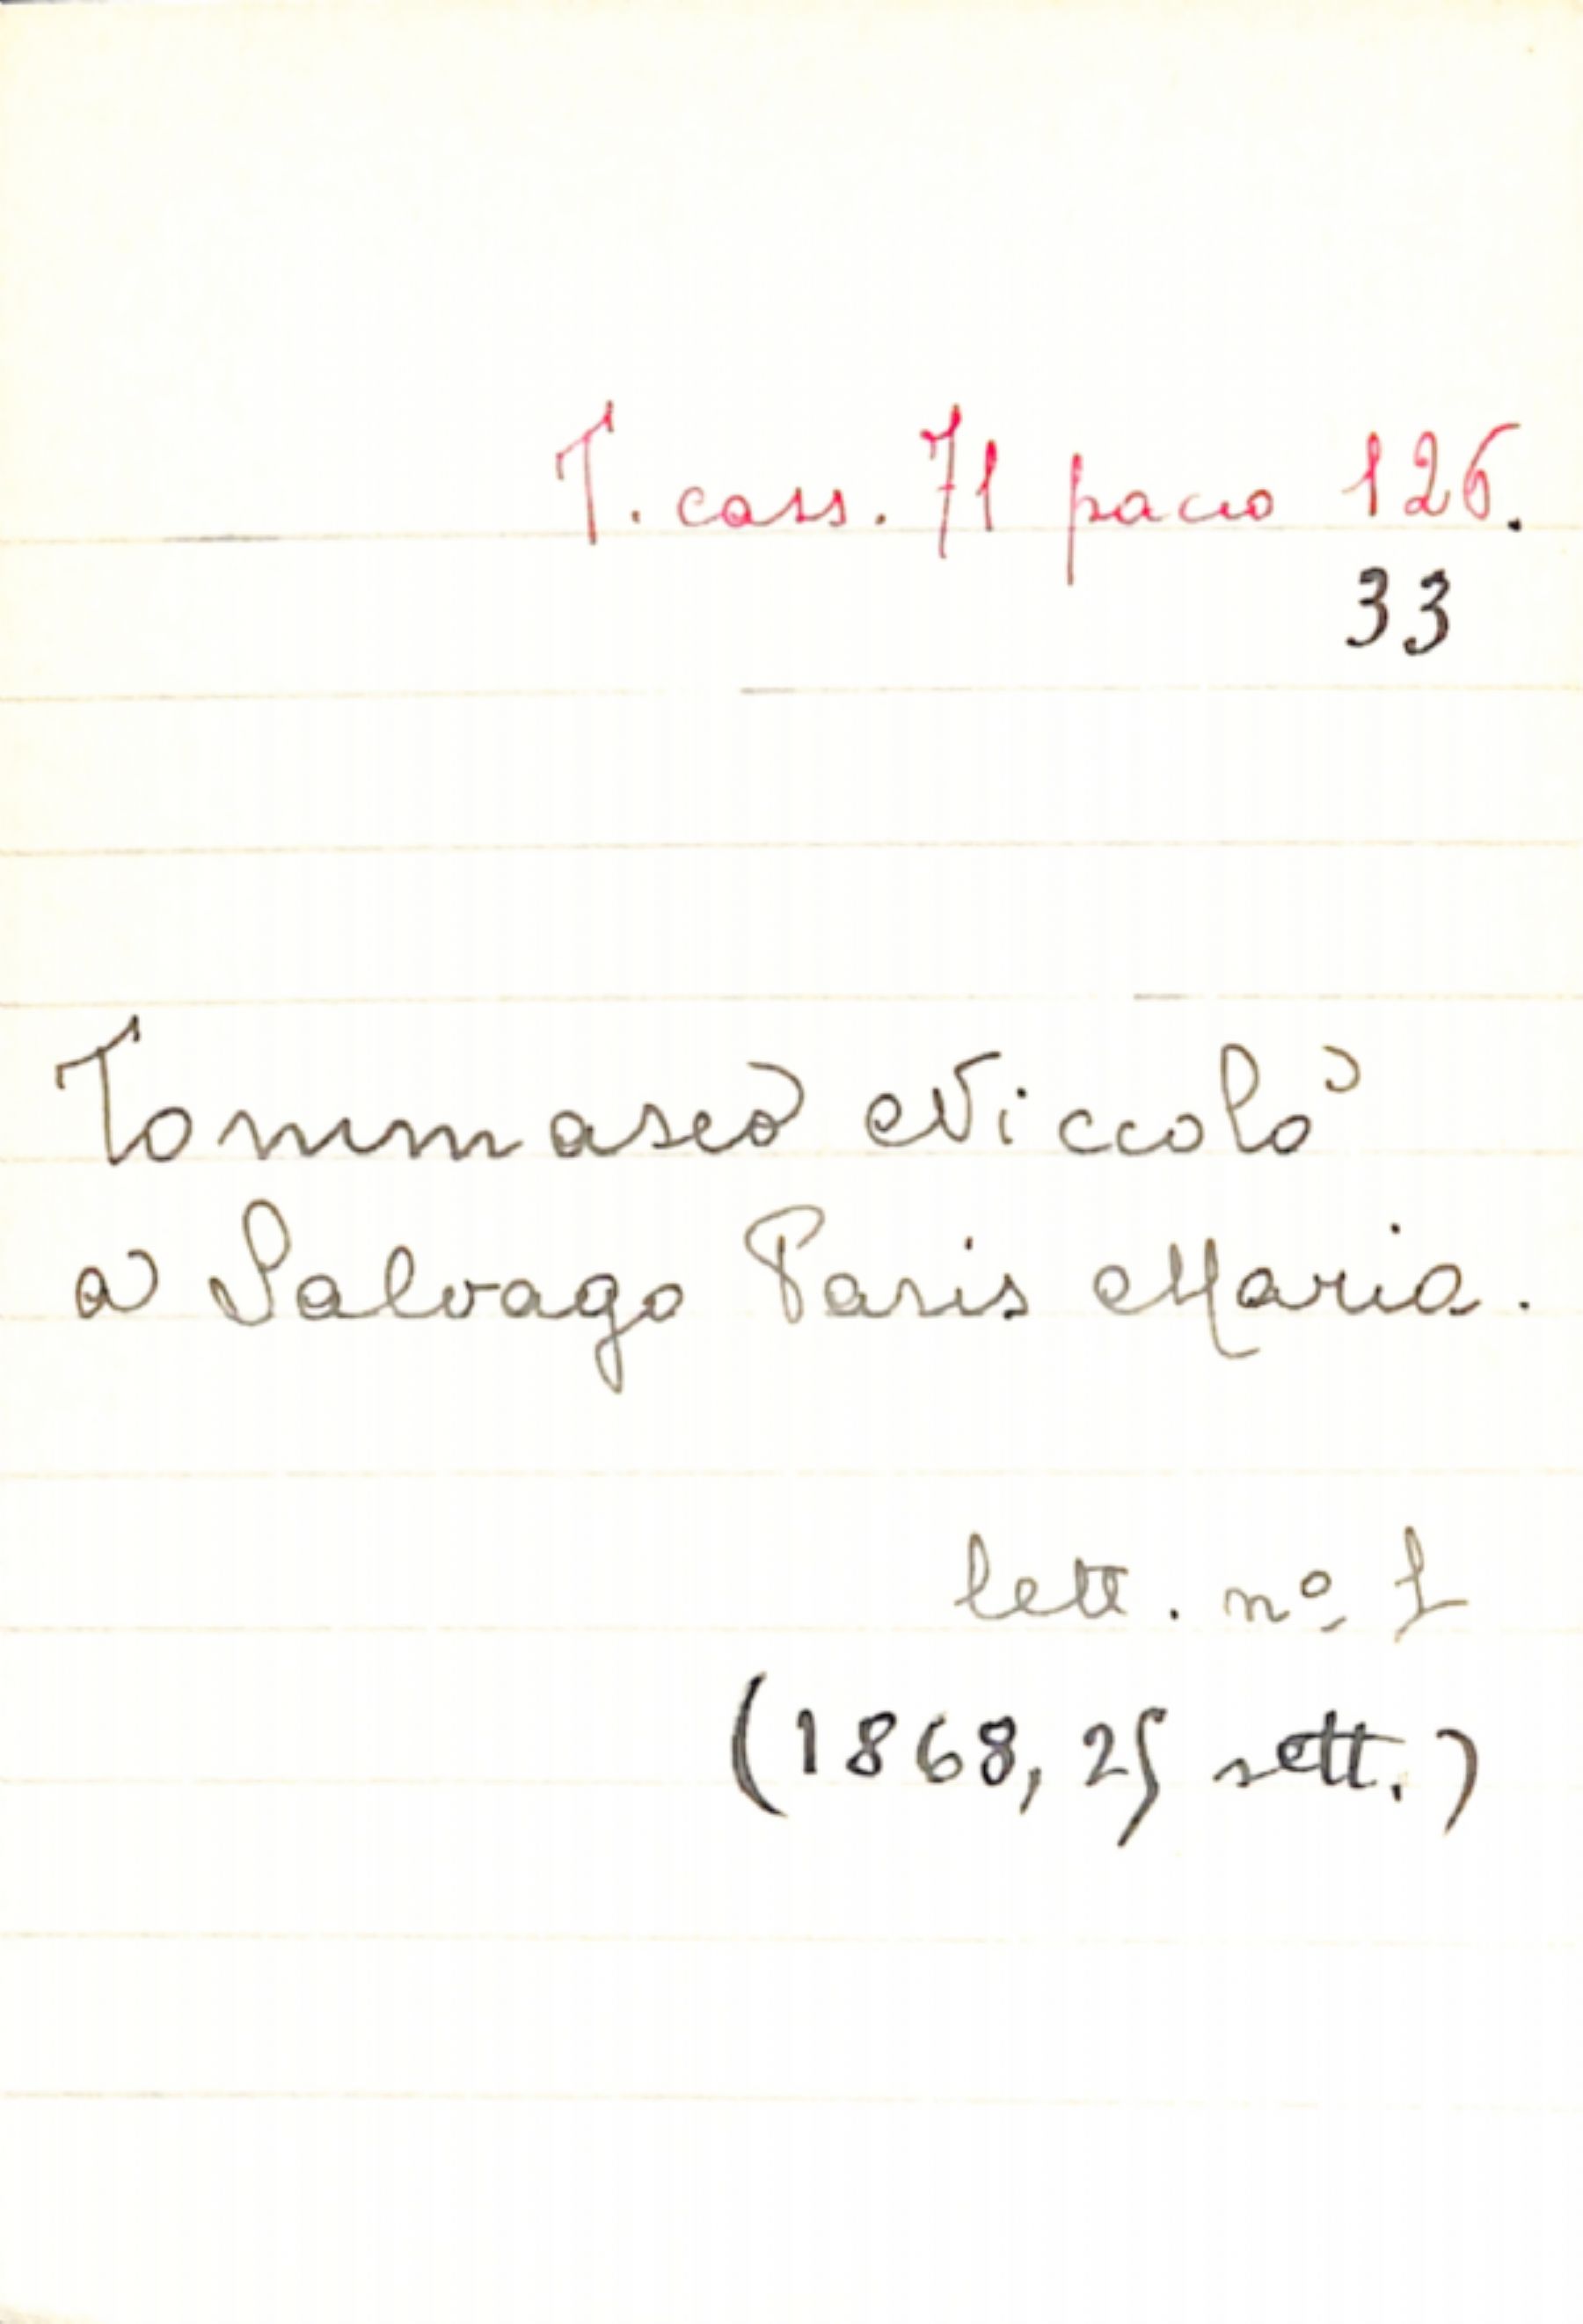 T. cass. 71 pacco 126.
33
Tommaseo Niccolò
a Salvago Paris Maria.
lett. nº 1
(1868, 25 sett.)